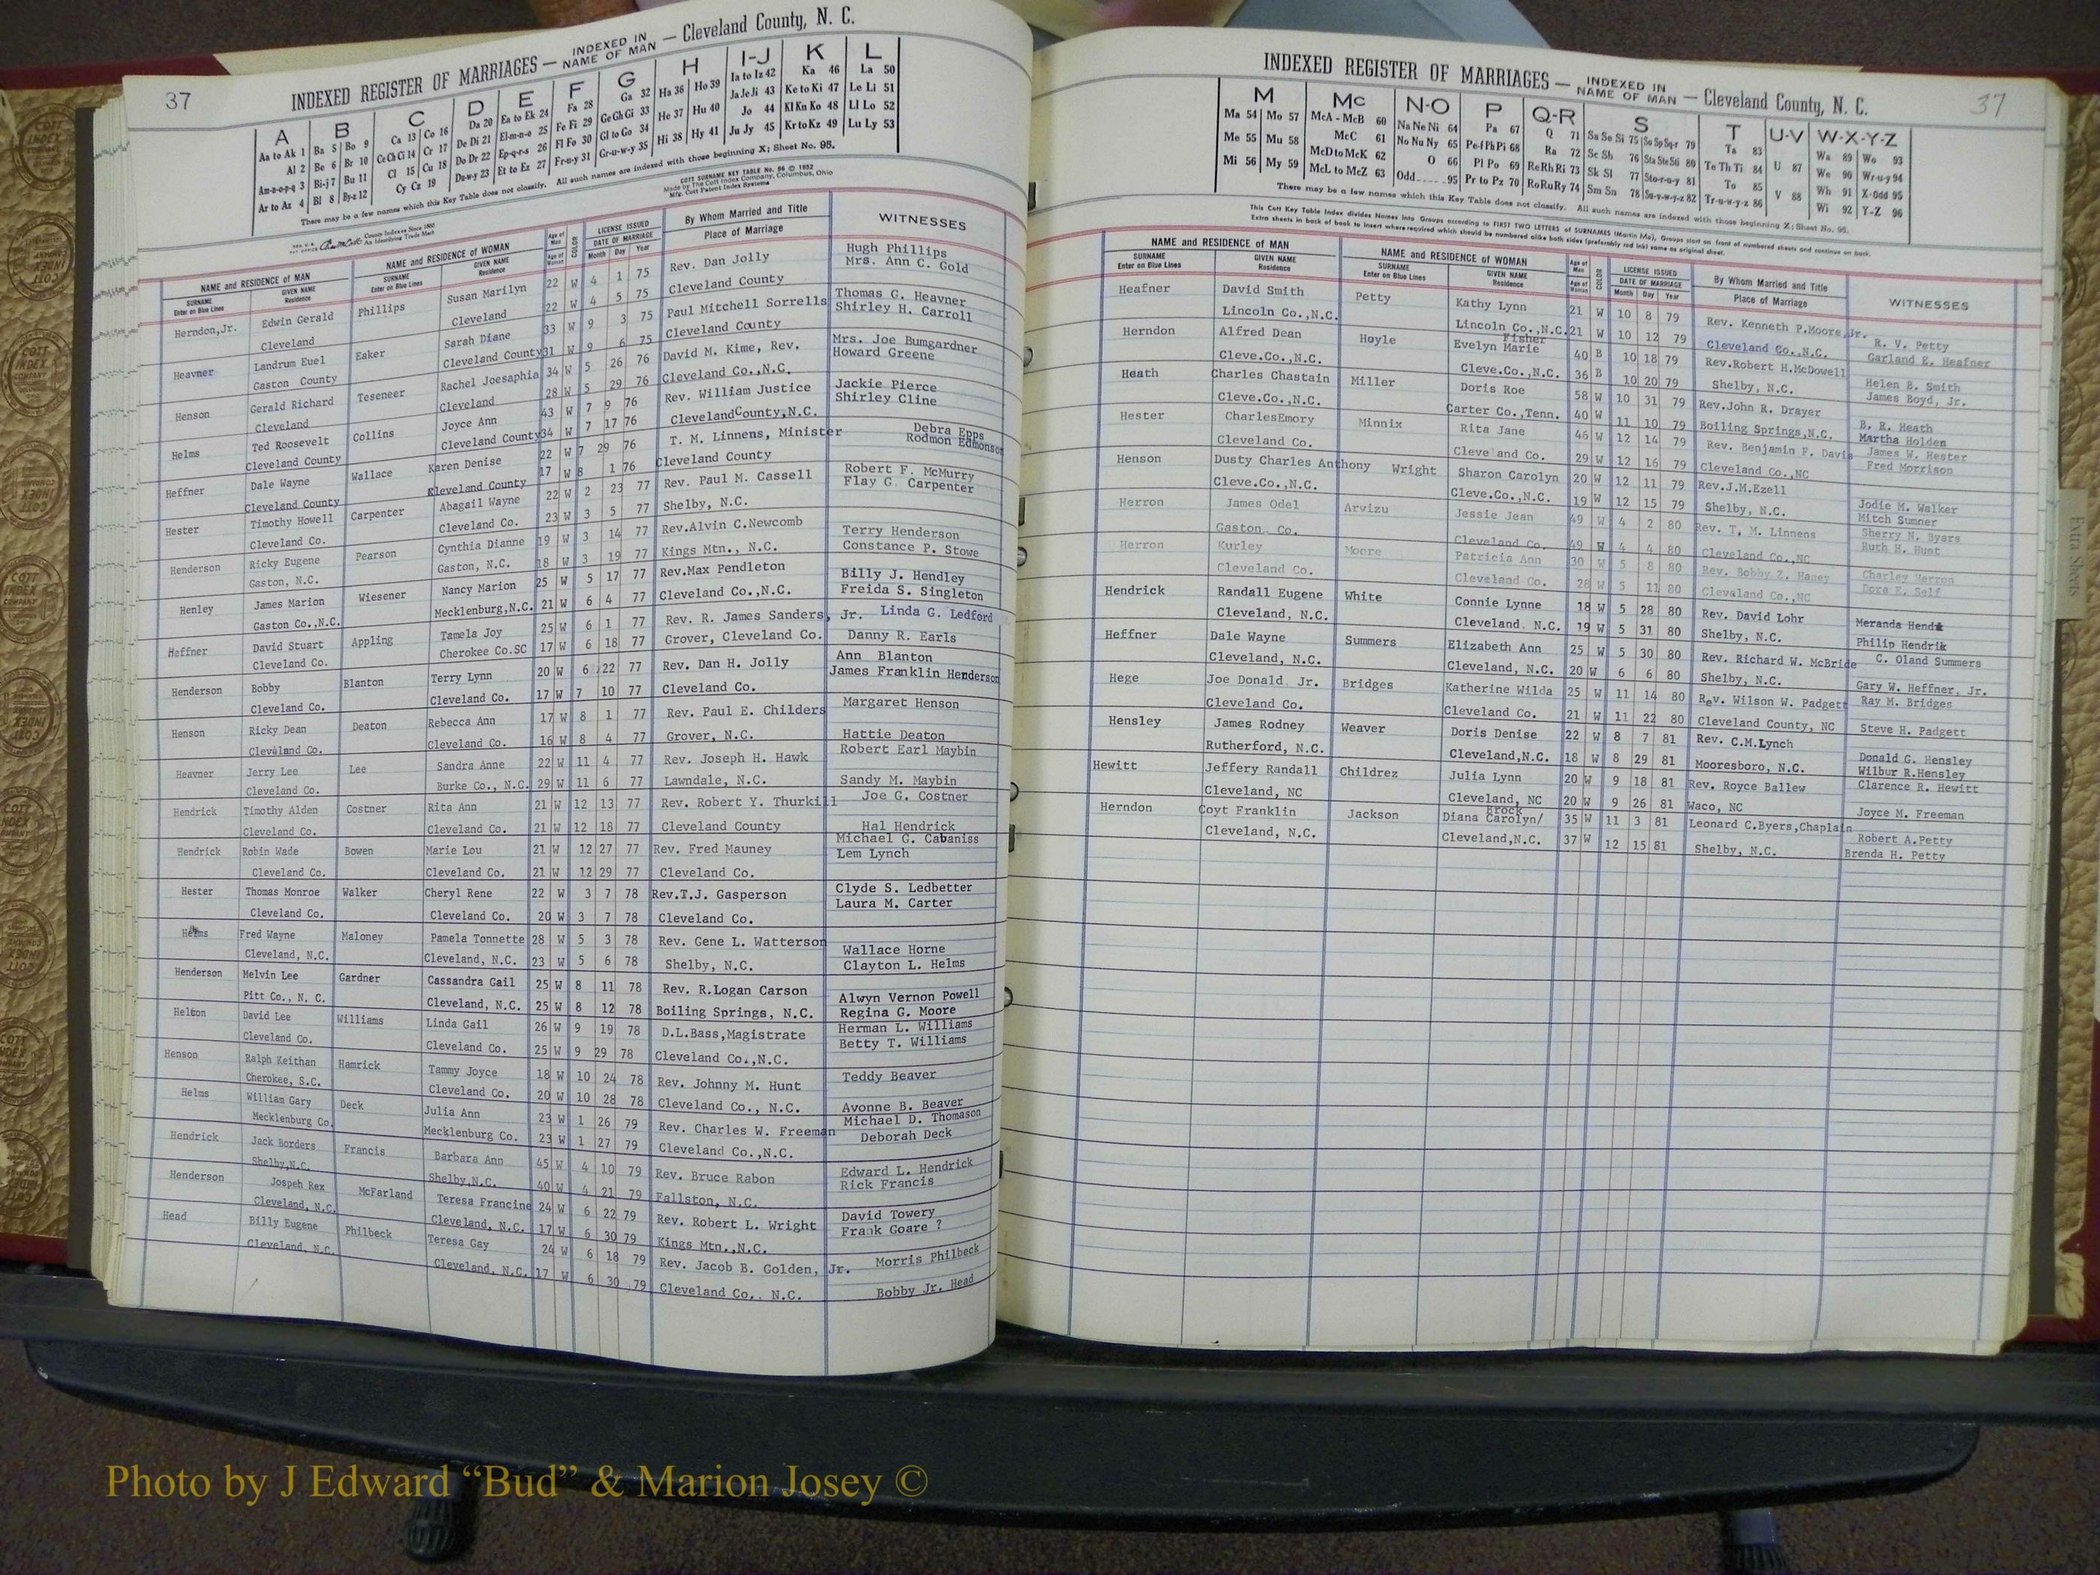 37
INDEXED REGISTER OF MARRIAGES — INDEXED IN NAME OF MAN — Cleveland County, N. C.
A B C D E F G H I-J K L
Aa to Ak 1 Ba 5 Bo 9 Ca 13 Co 16 Da 20 Ea to Ek 24 Fa 28 Ga 32 Ha 36 Ho 39 Ia to Iz 42 Ka 46 La 50
Al 2 Be 6 Br 10 Ce Ch Ci 14 Cr 17 De Di 21 El-m-n-o 25 Fe Fi 29 Ge Gh Gi 33 He 37 Hu 40 Ja Je Ji 43 Ke to Ki 47 Le Li 51
Am-n-o-p-q 3 Bi-j 7 Bu 11 Cl 15 Cu 18 Do Dr 22 Ep-q-r-s 26 Fl Fo 30 Gl to Go 34 Hi 38 Hy 41 Jo 44 Kl Kn Ko 48 Ll Lo 52
Ar to Az 4 Bl 8 By-z 12 Cy Cz 19 Du-w-y 23 Et to Ez 27 Fr-u-y 31 Gr-u-w-y 35 Ju Jy 45 Kr to Kz 49 Lu Ly 53
There may be a few names which this Key Table does not classify. All such names are indexed with those beginning X; Sheet No. 95.
COTT SURNAME KEY TABLE No. 96 © 1952
Made by The Cott Index Company, Columbus, Ohio
Mfg. Cott Patent Index Systems
County Indexes Since 1888
An Identifying Trade Mark
NAME and RESIDENCE of MAN NAME and RESIDENCE of WOMAN Age of Man Age of Woman COLOR LICENSE ISSUED DATE OF MARRIAGE By Whom Married and Title Place of Marriage WITNESSES
SURNAME Enter on Blue Lines GIVEN NAME Residence SURNAME Enter on Blue Lines GIVEN NAME Residence Month Day Year
Herndon,Jr. Edwin Gerald Phillips Susan Marilyn 22 W 4 1 75 Rev. Dan Jolly Hugh Phillips
Cleveland Cleveland 22 W 4 5 75 Cleveland County Mrs. Ann C. Gold
Heavner Landrum Euel Eaker Sarah Diane 33 W 9 3 75 Paul Mitchell Sorrells Thomas G. Heavner
Gaston County Cleveland County 31 W 9 6 75 Cleveland County Shirley H. Carroll
Henson Gerald Richard Teseneer Rachel Joesaphia 34 W 5 26 76 David M. Kime, Rev. Mrs. Joe Bumgardner
Cleveland Cleveland 28 W 5 29 76 Cleveland Co.,N.C. Howard Greene
Helms Ted Roosevelt Collins Joyce Ann 43 W 7 9 76 Rev. William Justice Jackie Pierce
Cleveland County Cleveland County 34 W 7 17 76 Cleveland County,N.C. Shirley Cline
Heffner Dale Wayne Wallace Karen Denise 22 W 7 29 76 T. M. Linnens, Minister Debra Epps
Cleveland County Cleveland County 17 W 8 1 76 Cleveland County Rodmon Edmonson
Hester Timothy Howell Carpenter Abagail Wayne 22 W 2 23 77 Rev. Paul M. Cassell Robert F. McMurry
Cleveland Co. Cleveland Co. 23 W 3 5 77 Shelby, N.C. Flay G. Carpenter
Henderson Ricky Eugene Pearson Cynthia Dianne 19 W 3 14 77 Rev.Alvin C.Newcomb Terry Henderson
Gaston, N.C. Gaston, N.C. 18 W 3 19 77 Kings Mtn., N.C. Constance P. Stowe
Henley James Marion Wiesener Nancy Marion 25 W 5 17 77 Rev.Max Pendleton Billy J. Hendley
Gaston Co.,N.C. Mecklenburg,N.C. 21 W 6 4 77 Cleveland Co.,N.C. Freida S. Singleton
Heffner David Stuart Appling Tamela Joy 25 W 6 1 77 Rev. R. James Sanders, Jr. Linda G. Ledford
Cleveland Co. Cherokee Co.SC 17 W 6 18 77 Grover, Cleveland Co. Danny R. Earls
Henderson Bobby Blanton Terry Lynn 20 W 6 22 77 Rev. Dan H. Jolly Ann Blanton
Cleveland Co. Cleveland Co. 17 W 7 10 77 Cleveland Co. James Franklin Henderson
Henson Ricky Dean Deaton Rebecca Ann 17 W 8 1 77 Rev. Paul E. Childers Margaret Henson
Cleveland Co. Cleveland Co. 16 W 8 4 77 Grover, N.C. Hattie Deaton
Heavner Jerry Lee Lee Sandra Anne 22 W 11 4 77 Rev. Joseph H. Hawk Robert Earl Maybin
Cleveland Co. Burke Co., N.C. 29 W 11 6 77 Lawndale, N.C. Sandy M. Maybin
Hendrick Timothy Alden Costner Rita Ann 21 W 12 13 77 Rev. Robert Y. Thurkill Joe G. Costner
Cleveland Co. Cleveland Co. 21 W 12 18 77 Cleveland County Hal Hendrick
Hendrick Robin Wade Bowen Marie Lou 21 W 12 27 77 Rev. Fred Mauney Michael G. Cabaniss
Cleveland Co. Cleveland Co. 21 W 12 29 77 Cleveland Co. Lem Lynch
Hester Thomas Monroe Walker Cheryl Rene 22 W 3 7 78 Rev.T.J. Gasperson Clyde S. Ledbetter
Cleveland Co. Cleveland Co. 20 W 3 7 78 Cleveland Co. Laura M. Carter
Helms Fred Wayne Maloney Pamela Tonnette 28 W 5 3 78 Rev. Gene L. Watterson Wallace Horne
Cleveland, N.C. Cleveland, N.C. 23 W 5 6 78 Shelby, N.C. Clayton L. Helms
Henderson Melvin Lee Gardner Cassandra Gail 25 W 8 11 78 Rev. R.Logan Carson Alwyn Vernon Powell
Pitt Co., N. C. Cleveland, N.C. 25 W 8 12 78 Boiling Springs, N.C. Regina G. Moore
Helton David Lee Williams Linda Gail 26 W 9 19 78 D.L.Bass,Magistrate Herman L. Williams
Cleveland Co. Cleveland Co. 25 W 9 29 78 Cleveland Co.,N.C. Betty T. Williams
Henson Ralph Keithan Hamrick Tammy Joyce 18 W 10 24 78 Rev. Johnny M. Hunt Teddy Beaver
Cherokee, S.C. Cleveland Co. 20 W 10 28 78 Cleveland Co., N.C. Avonne B. Beaver
Helms William Gary Deck Julia Ann 23 W 1 26 79 Rev. Charles W. Freeman Michael D. Thomason
Mecklenburg Co. Mecklenburg Co. 23 W 1 27 79 Cleveland Co.,N.C. Deborah Deck
Hendrick Jack Borders Francis Barbara Ann 45 W 4 10 79 Rev. Bruce Rabon Edward L. Hendrick
Shelby,N.C. Shelby,N.C. 40 W 4 21 79 Fallston, N.C. Rick Francis
Henderson Jospeh Rex McFarland Teresa Francine 24 W 6 22 79 Rev. Robert L. Wright David Towery
Cleveland, N.C. Cleveland, N.C. 17 W 6 30 79 Kings Mtn.,N.C. Frank Goare ?
Head Billy Eugene Philbeck Teresa Gay 24 W 6 18 79 Rev. Jacob B. Golden, Jr. Morris Philbeck
Cleveland, N.C. Cleveland, N.C. 17 W 6 30 79 Cleveland Co., N.C. Bobby Jr. Head
INDEXED REGISTER OF MARRIAGES — INDEXED IN NAME OF MAN — Cleveland County, N. C.
37
M Mc N-O P Q-R S T U-V W-X-Y-Z
Ma 54 Mo 57 McA - McB 60 Na Ne Ni 64 Pa 67 Q 71 Sa Se Si 75 So Sp Sq-r 79 Ta 83 Wa 89 Wo 93
Me 55 Mu 58 McC 61 No Nu Ny 65 Pe-f Ph Pi 68 Ra 72 Sc Sh 76 Sta Ste Sti 80 Te Th Ti 84 U 87 We 90 Wr-u-y 94
Mi 56 My 59 McD to McK 62 O 66 Pl Po 69 Re Rh Ri 73 Sk Sl 77 Sto-r-u-y 81 To 85 Wh 91 X-Odd 95
McL to McZ 63 Odd 95 Pr to Pz 70 Ro Ru Ry 74 Sm Sn 78 Su-v-w-y-z 82 Tr-u-w-y-z 86 V 88 Wi 92 Y-Z 96
There may be a few names which this Key Table does not classify. All such names are indexed with those beginning X; Sheet No. 95.
This Cott Key Table Index divides Names into Groups according to FIRST TWO LETTERS of SURNAMES (Martin Ma), Groups start on front of numbered sheets and continue on back.
Extra sheets in back of book to insert where required which should be numbered alike both sides (preferably red ink) same as original sheet.
NAME and RESIDENCE of MAN NAME and RESIDENCE of WOMAN Age of Man Age of Woman COLOR LICENSE ISSUED DATE OF MARRIAGE By Whom Married and Title Place of Marriage WITNESSES
SURNAME Enter on Blue Lines GIVEN NAME Residence SURNAME Enter on Blue Lines GIVEN NAME Residence Month Day Year
Heafner David Smith Petty Kathy Lynn 21 W 10 8 79 Rev. Kenneth P.Moore,Jr. R. V. Petty
Lincoln Co.,N.C. Lincoln Co.,N.C. 21 W 10 12 79 Cleveland Co.,N.C. Garland E. Heafner
Herndon Alfred Dean Hoyle Evelyn Marie Fisher 40 B 10 18 79 Rev.Robert H.McDowell Helen B. Smith
Cleve.Co.,N.C. Cleve.Co.,N.C. 36 B 10 20 79 Shelby, N.C. James Boyd, Jr.
Heath Charles Chastain Miller Doris Roe 58 W 10 31 79 Rev.John R. Drayer B. R. Heath
Cleve.Co.,N.C. Carter Co.,Tenn. 40 W 11 10 79 Boiling Springs,N.C. Martha Holden
Hester CharlesEmory Minnix Rita Jane 46 W 12 14 79 Rev. Benjamin F. Davis James W. Hester
Cleveland Co. Cleveland Co. 29 W 12 16 79 Cleveland Co.,NC Fred Morrison
Henson Dusty Charles Anthony Wright Sharon Carolyn 20 W 12 11 79 Rev.J.M.Ezell Jodie M. Walker
Cleve.Co.,N.C. Cleve.Co.,N.C. 19 W 12 15 79 Shelby, N.C. Mitch Sumner
Herron James Odel Arvizu Jessie Jean 49 W 4 2 80 Rev. T. M. Linnens Sherry N. Byars
Gaston Co. Cleveland Co. 49 W 4 4 80 Cleveland Co.,NC Ruth H. Hunt
Herron Kurley Moore Patricia Ann 30 W 5 8 80 Rev. Bobby Z. Haney Charley Herron
Cleveland Co. Cleveland Co. 28 W 5 11 80 Cleveland Co.,NC Dora E. Self
Hendrick Randall Eugene White Connie Lynne 18 W 5 28 80 Rev. David Lohr Meranda Hendk
Cleveland, N.C. Cleveland, N.C. 19 W 5 31 80 Shelby, N.C. Philip Hendrik
Heffner Dale Wayne Summers Elizabeth Ann 25 W 5 30 80 Rev. Richard W. McBride C. Oland Summers
Cleveland, N.C. Cleveland, N.C. 20 W 6 6 80 Shelby, N.C. Gary W. Heffner, Jr.
Hege Joe Donald Jr. Bridges Katherine Wilda 25 W 11 14 80 Rev. Wilson W. Padgett Ray M. Bridges
Cleveland Co. Cleveland Co. 21 W 11 22 80 Cleveland County, NC Steve H. Padgett
Hensley James Rodney Weaver Doris Denise 22 W 8 7 81 Rev. C.M.Lynch Donald G. Hensley
Rutherford, N.C. Cleveland,N.C. 18 W 8 29 81 Mooresboro, N.C. Wilbur R.Hensley
Hewitt Jeffery Randall Childrez Julia Lynn 20 W 9 18 81 Rev. Royce Ballew Clarence R. Hewitt
Cleveland, NC Cleveland, NC 20 W 9 26 81 Waco, NC Joyce M. Freeman
Herndon Coyt Franklin Jackson Diana Carolyn/ Brock 35 W 11 3 81 Leonard C.Byers,Chaplain Robert A.Petty
Cleveland, N.C. Cleveland,N.C. 37 W 12 15 81 Shelby, N.C. Brenda H. Petty
Extra Sheets
Photo by J Edward “Bud” & Marion Josey ©